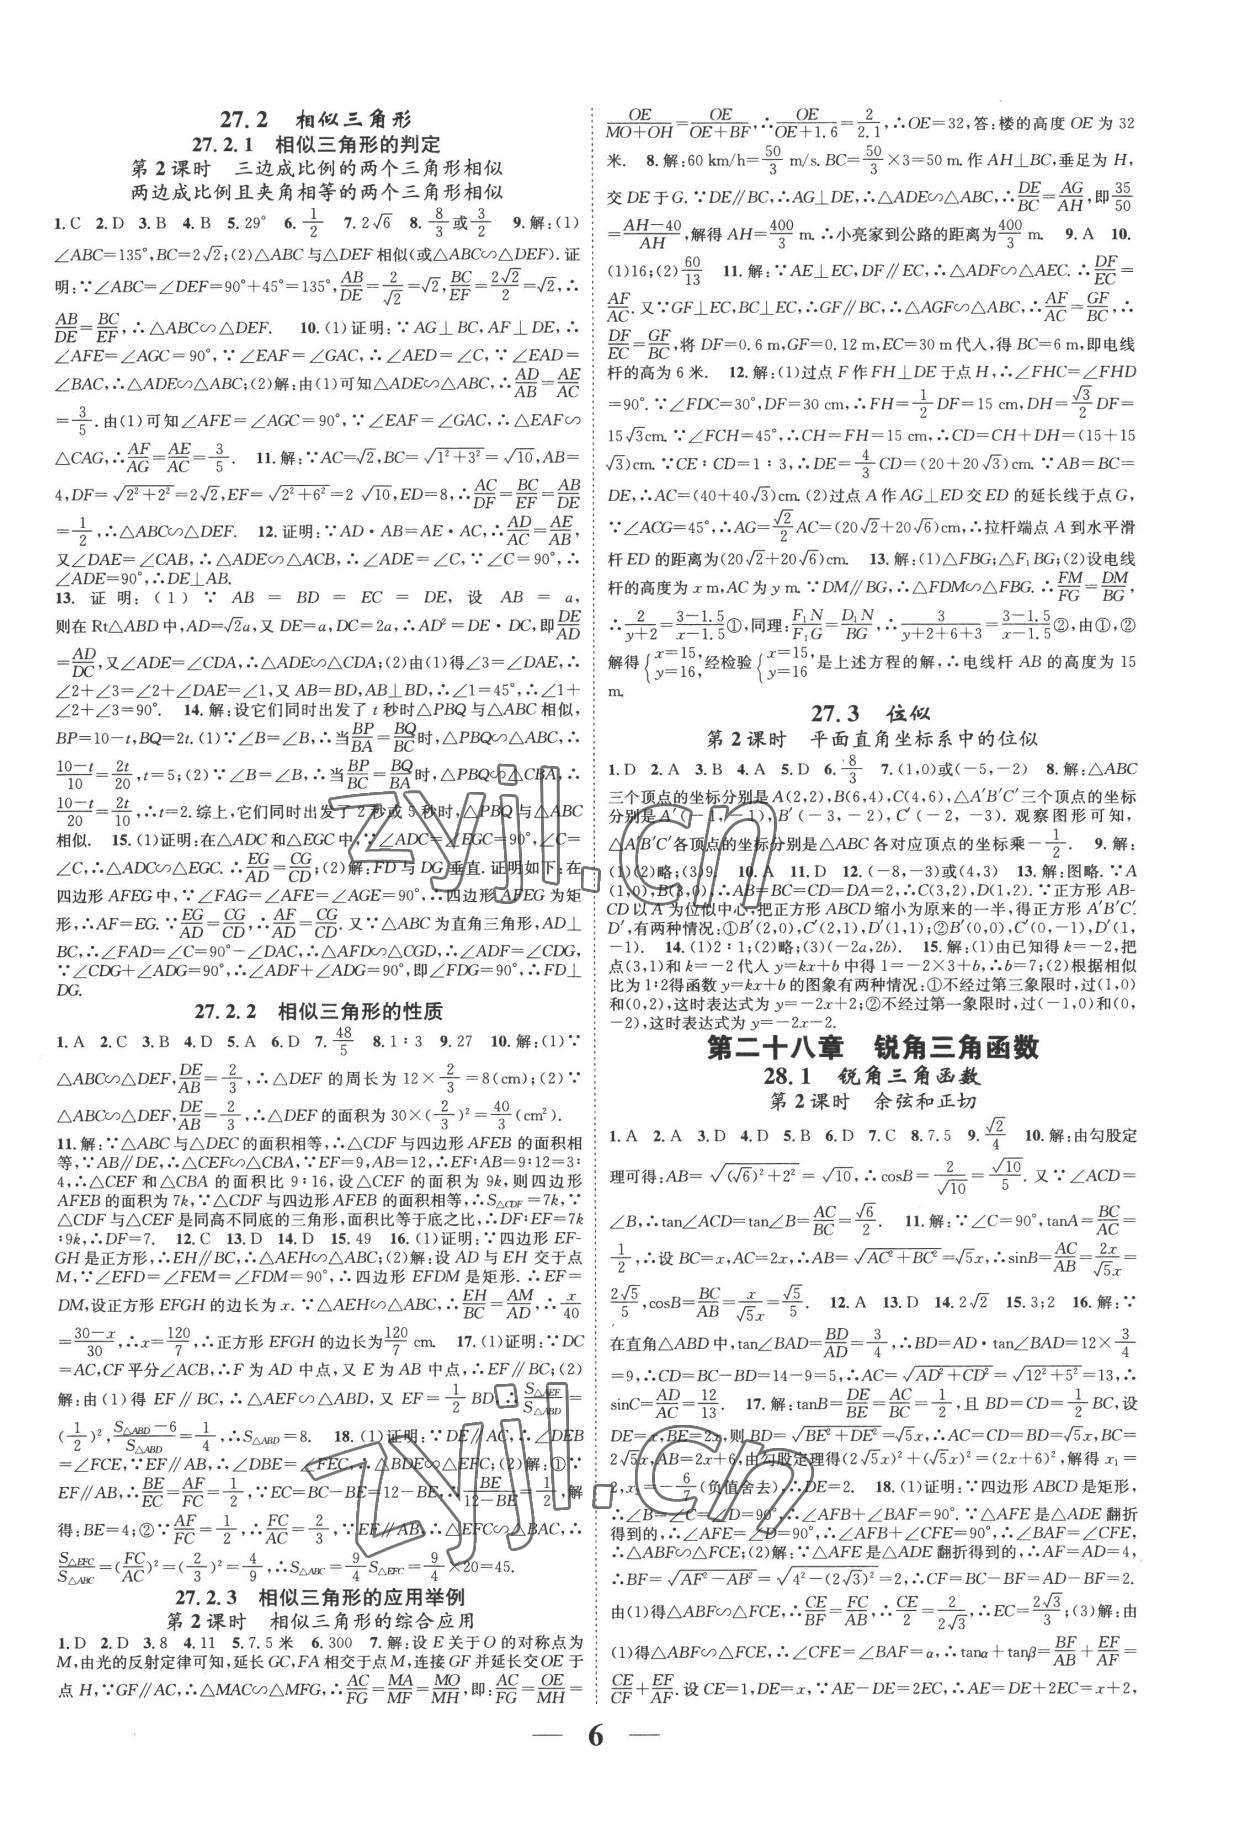 27.2 相似三角形
27.2.1 相似三角形的判定
第2课时 三边成比例的两个三角形相似
两边成比例且夹角相等的两个三角形相似
1.C 2.D 3.B 4.B 5.29° 6.1/2 7.2√6 8.8/3或3/2 9.解:(1)
∠ABC=135°,BC=2√2;(2)△ABC与△DEF相似(或△ABC∽△DEF).证
明:∵∠ABC=∠DEF=90°+45°=135°,AB/DE=2/√2=√2,BC/EF=2√2/2=√2,∴
AB/DE=BC/EF,∴△ABC∽△DEF. 10.(1)证明:∵AG⊥BC,AF⊥DE,∴
∠AFE=∠AGC=90°,∵∠EAF=∠GAC,∴∠AED=∠C,∵∠EAD=
∠BAC,∴△ADE∽△ABC;(2)解:由(1)可知△ADE∽△ABC,∴AD/AB=AE/AC
=3/5.由(1)可知∠AFE=∠AGC=90°,∵∠EAF=∠GAC,∴△EAF∽
△CAG,∴AF/AG=AE/AC=3/5. 11.解:∵AC=√2,BC=√(1²+3²)=√10,AB=
4,DF=√(2²+2²)=2√2,EF=√(2²+6²)=2√10,ED=8,∴AC/DF=BC/EF=AB/DE
=1/2,∴△ABC∽△DEF. 12.证明:∵AD·AB=AE·AC,∴AD/AC=AE/AB,
又∠DAE=∠CAB,∴△ADE∽△ACB,∴∠ADE=∠C,∵∠C=90°,∴
∠ADE=90°,∴DE⊥AB.
13.证明:(1)∵AB=BD=EC=DE,设AB=a,
则在Rt△ABD中,AD=√2a,又DE=a,DC=2a,∴AD²=DE·DC,即DE/AD
=AD/DC,又∠ADE=∠CDA,∴△ADE∽△CDA;(2)由(1)得∠3=∠DAE,∴
∠2+∠3=∠2+∠DAE=∠1,又AB=BD,AB⊥BD,∴∠1=45°,∴∠1+
∠2+∠3=90°. 14.解:设它们同时出发了t秒时△PBQ与△ABC相似,
BP=10-t,BQ=2t.(1)∵∠B=∠B,∴当BP/BA=BQ/BC时,△PBQ∽△ABC,∴
(10-t)/10=2t/20,t=5;(2)∵∠B=∠B,∴当BP/BC=BQ/BA时,△PBQ∽△CBA,∴
(10-t)/20=2t/10,∴t=2.综上,它们同时出发了2秒或5秒时,△PBQ与△ABC
相似. 15.(1)证明:在△ADC和△EGC中,∵∠ADC=∠EGC=90°,∠C=
∠C,∴△ADC∽△EGC.∴EG/AD=CG/CD;(2)解:FD与DG垂直.证明如下:在
四边形AFEG中,∵∠FAG=∠AFE=∠AGE=90°,∴四边形AFEG为矩
形,∴AF=EG.∵EG/AD=CG/CD,∴AF/AD=CG/CD.又∵△ABC为直角三角形,AD⊥
BC,∴∠FAD=∠C=90°-∠DAC,∴△AFD∽△CGD,∴∠ADF=∠CDG,
∵∠CDG+∠ADG=90°,∴∠ADF+∠ADG=90°,即∠FDG=90°,∴FD⊥
DG.
27.2.2 相似三角形的性质
1.A 2.C 3.B 4.D 5.A 6.D 7.48/5 8.1∶3 9.27 10.解:(1)∵
△ABC∽△DEF,DE/AB=2/3,∴△DEF的周长为12×2/3=8(cm);(2)∵
△ABC∽△DEF,DE/AB=2/3,∴△DEF的面积为30×(2/3)²=40/3(cm²).
11.解:∵△ABC与△DEC的面积相等,∴△CDF与四边形AFEB的面积相
等,∵AB∥DE,∴△CEF∽△CBA,∵EF=9,AB=12,∴EF∶AB=9∶12=3∶
4,∴△CEF和△CBA的面积比9∶16,设△CEF的面积为9k,则四边形
AFEB的面积为7k,∵△CDF与四边形AFEB的面积相等,∴S△CDF=7k,∵
△CDF与△CEF是同高不同底的三角形,面积比等于底之比,∴DF∶EF=7k
∶9k,∴DF=7. 12.C 13.D 14.D 15.49 16.(1)证明:∵四边形EF-
GH是正方形,∴EH∥BC,∴△AEH∽△ABC;(2)解:设AD与EH交于点
M,∵∠EFD=∠FEM=∠FDM=90°,∴四边形EFDM是矩形.∴EF=
DM,设正方形EFGH的边长为x.∵△AEH∽△ABC,∴EH/BC=AM/AD,∴x/40
=(30-x)/30,∴x=120/7,∴正方形EFGH的边长为120/7 cm. 17.(1)证明:∵DC
=AC,CF平分∠ACB,∴F为AD中点,又E为AB中点,∴EF∥BC;(2)
解:由(1)得EF∥BC,∴△AEF∽△ABD,又EF=1/2BD,∴S△AEF/S△ABD=
(1/2)²,(S△ABD-6)/S△ABD=1/4,∴S△ABD=8. 18.(1)证明:∵DE∥AC,∴∠DEB
=∠FCE,∵EF∥AB,∴∠DBE=∠FEC,∴△BDE∽△EFC;(2)解:①∵
EF∥AB,∴BE/EC=AF/FC=1/2,∵EC=BC-BE=12-BE,∴BE/(12-BE)=1/2,解
得:BE=4;②∵AF/FC=1/2,∴FC/AC=2/3,∵EF∥AB,∴△EFC∽△BAC,∴
S△EFC/S△ABC=(FC/AC)²=(2/3)²=4/9,∴S△ABC=9/4S△EFC=9/4×20=45.
27.2.3 相似三角形的应用举例
第2课时 相似三角形的综合应用
1.D 2.D 3.8 4.11 5.7.5米 6.300 7.解:设E关于O的对称点为
M,由光的反射定律可知,延长GC,FA相交于点M,连接GF并延长交OE于
点H,∵GF∥AC,∴△MAC∽△MFG,∴AC/FG=MA/MF=MO/MH,即:AC/FG=OE/MH=
OE/(MO+OH)=OE/(OE+BF),∴OE/(OE+1.6)=2/2.1,∴OE=32,答:楼的高度OE为32
米. 8.解:60 km/h=50/3 m/s.BC=50/3×3=50m.作AH⊥BC,垂足为H,
交DE于G.∵DE∥BC,∴AG⊥DE,∴△ADE∽△ABC,∴DE/BC=AG/AH,即35/50
=(AH-40)/AH,解得AH=400/3 m.∴小亮家到公路的距离为400/3 m. 9.A 10.
(1)16;(2)60/13 11.解:∵AE⊥EC,DF∥EC,∴△ADF∽△AEC.∴DF/EC=
AF/AC.又∵GF⊥EC,BC⊥EC,∴GF∥BC,∴△AGF∽△ABC,∴AF/AC=GF/BC,∴
DF/EC=GF/BC,将DF=0.6 m,GF=0.12 m,EC=30 m代入,得BC=6 m,即电线
杆的高为6米. 12.解:(1)过点F作FH⊥DE于点H,∴∠FHC=∠FHD
=90°.∵∠FDC=30°,DF=30 cm,∴FH=1/2DF=15 cm,DH=√3/2DF=
15√3cm.∵∠FCH=45°,∴CH=FH=15 cm,∴CD=CH+DH=(15+15
√3)cm.∵CE∶CD=1∶3,∴DE=4/3CD=(20+20√3)cm.∵AB=BC=
DE,∴AC=(40+40√3)cm.(2)过点A作AG⊥ED交ED的延长线于点G,
∵∠ACG=45°,∴AG=√2/2AC=(20√2+20√6)cm,∴拉杆端点A到水平滑
杆ED的距离为(20√2+20√6)cm. 13.解:(1)△FBG;△F₁BG;(2)设电线
杆的高度为x m,AC为y m.∵DM∥BG,∴△FDM∽△FBG.∴FM/FG=DM/BG,
∴2/(y+2)=(3-1.5)/(x-1.5)①,同理:F₁N/F₁G=D₁N/BG,∴3/(y+2+6+3)=(3-1.5)/(x-1.5)②,由①,②
解得{x=15,y=16,经检验{x=15,y=16是上述方程的解,∴电线杆AB的高度为15
m.
27.3 位似
第2课时 平面直角坐标系中的位似
1.D 2.A 3.B 4.A 5.D 6.8/3 7.(1,0)或(-5,-2) 8.解:△ABC
三个顶点的坐标分别是A(2,2),B(6,4),C(4,6),△A′B′C′三个顶点的坐标
分别是A′(-1,-1),B′(-3,-2),C′(-2,-3).观察图形可知,
△A′B′C′各顶点的坐标分别是△ABC各对应顶点的坐标乘-1/2. 9.解:
(1)(2)略;(3)9. 10.A 11.D 12.(-8,-3)或(4,3) 13.解:图略.∵A
(1,0),B(3,0),∴AB=BC=CD=DA=2,∴C(3,2),D(1,2).∵正方形AB-
CD以A为位似中心,把正方形ABCD缩小为原来的一半,得正方形A′B′C′
D′,有两种情况:①B′(2,0),C′(2,1),D′(1,1);②B′(0,0),C′(0,-1),D′(1,
-1). 14.(1)2∶1;(2)略;(3)(-2a,2b). 15.解:(1)由已知得k=-2,把
点(3,1)和k=-2代入y=kx+b中得1=-2×3+b,∴b=7;(2)根据相似
比为1∶2得函数y=kx+b的图象有两种情况:①不经过第三象限时,过(1,0)
和(0,2),这时表达式为y=-2x+2;②不经过第一象限时,过(-1,0)和(0,
-2),这时表达式为y=-2x-2.
第二十八章 锐角三角函数
28.1 锐角三角函数
第2课时 余弦和正切
1.A 2.A 3.D 4.D 5.B 6.D 7.C 8.7.5 9.√2/4 10.解:由勾股定
理可得:AB=√((√6)²+2²)=√10,∴cosB=2/√10=√10/5.又∵∠ACD=
∠B,∴tan∠ACD=tan∠B=AC/BC=√6/2. 11.解:∵∠C=90°,tanA=BC/AC=
1/2,∴设BC=x,AC=2x,∴AB=√(AC²+BC²)=√5x,∴sinB=AC/AB=2x/√5x=
2√5/5,cosB=BC/AB=x/√5x=√5/5. 12.A 13.D 14.2√2 15.3;2 16.解:∵
在直角△ABD中,tan∠BAD=BD/AD=3/4,∴BD=AD·tan∠BAD=12×3/4
=9,∴CD=BC-BD=14-9=5,∴AC=√(AD²+CD²)=√(12²+5²)=13,∴
sinC=AD/AC=12/13. 17.解:tanB=DE/BE=AC/BC=1/2,且BD=CD=1/2BC,设
DE=x,BE=2x,则BD=√(BE²+DE²)=√5x,∴AC=CD=BD=√5x,BC=
2√5x,AB=2x+6,由勾股定理得(2√5x)²+(√5x)²=(2x+6)²,解得x₁=
2,x₂=-6/7(负值舍去),∴DE=2. 18.(1)证明:∵四边形ABCD是矩形,
∴∠B=∠C=∠D=90°,∴∠AFB+∠BAF=90°.∵△AFE是△ADE翻折
得到的,∴∠AFE=∠D=90°,∴∠AFB+∠CFE=90°,∴∠BAF=∠CFE,
∴△ABF∽△FCE;(2)解:∵△AFE是△ADE翻折得到的,∴AF=AD=4,
∴BF=√(AF²-AB²)=√(4²-(2√3)²)=2,∴CF=BC-BF=AD-BF=2.
由(1)得△ABF∽△FCE,∴CE/BF=FC/AB,∴CE/2=2/2√3,∴EC=2√3/3;(3)解:由
(1)得△ABF∽△FCE,∴∠CFE=∠BAF=α,∴tanα+tanβ=BF/AB+EF/AF=
CE/CF+EF/AF.设CE=1,DE=x,∵AE-DE=2EC,∴AE=DE+2EC=x+2,
6
zyjl.cn
zyjl.cn